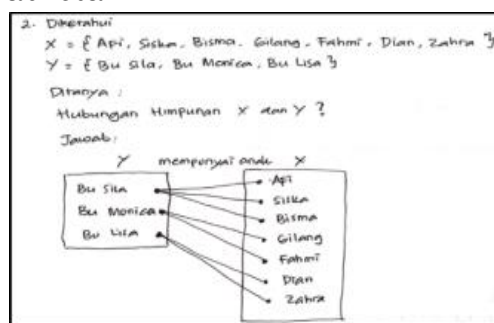 2. Diketahui
X = { Api, Siska, Bisma, Gilang, Fahmi, Dian, Zahra }
Y = { Bu Sila, Bu Monica, Bu Lisa }
Ditanya :
Hubungan Himpunan X dan Y ?
Jawab:
Y mempunyai anak X
Bu Sila
Bu Monica
Bu Lisa
Api
Siska
Bisma
Gilang
Fahmi
Dian
Zahra